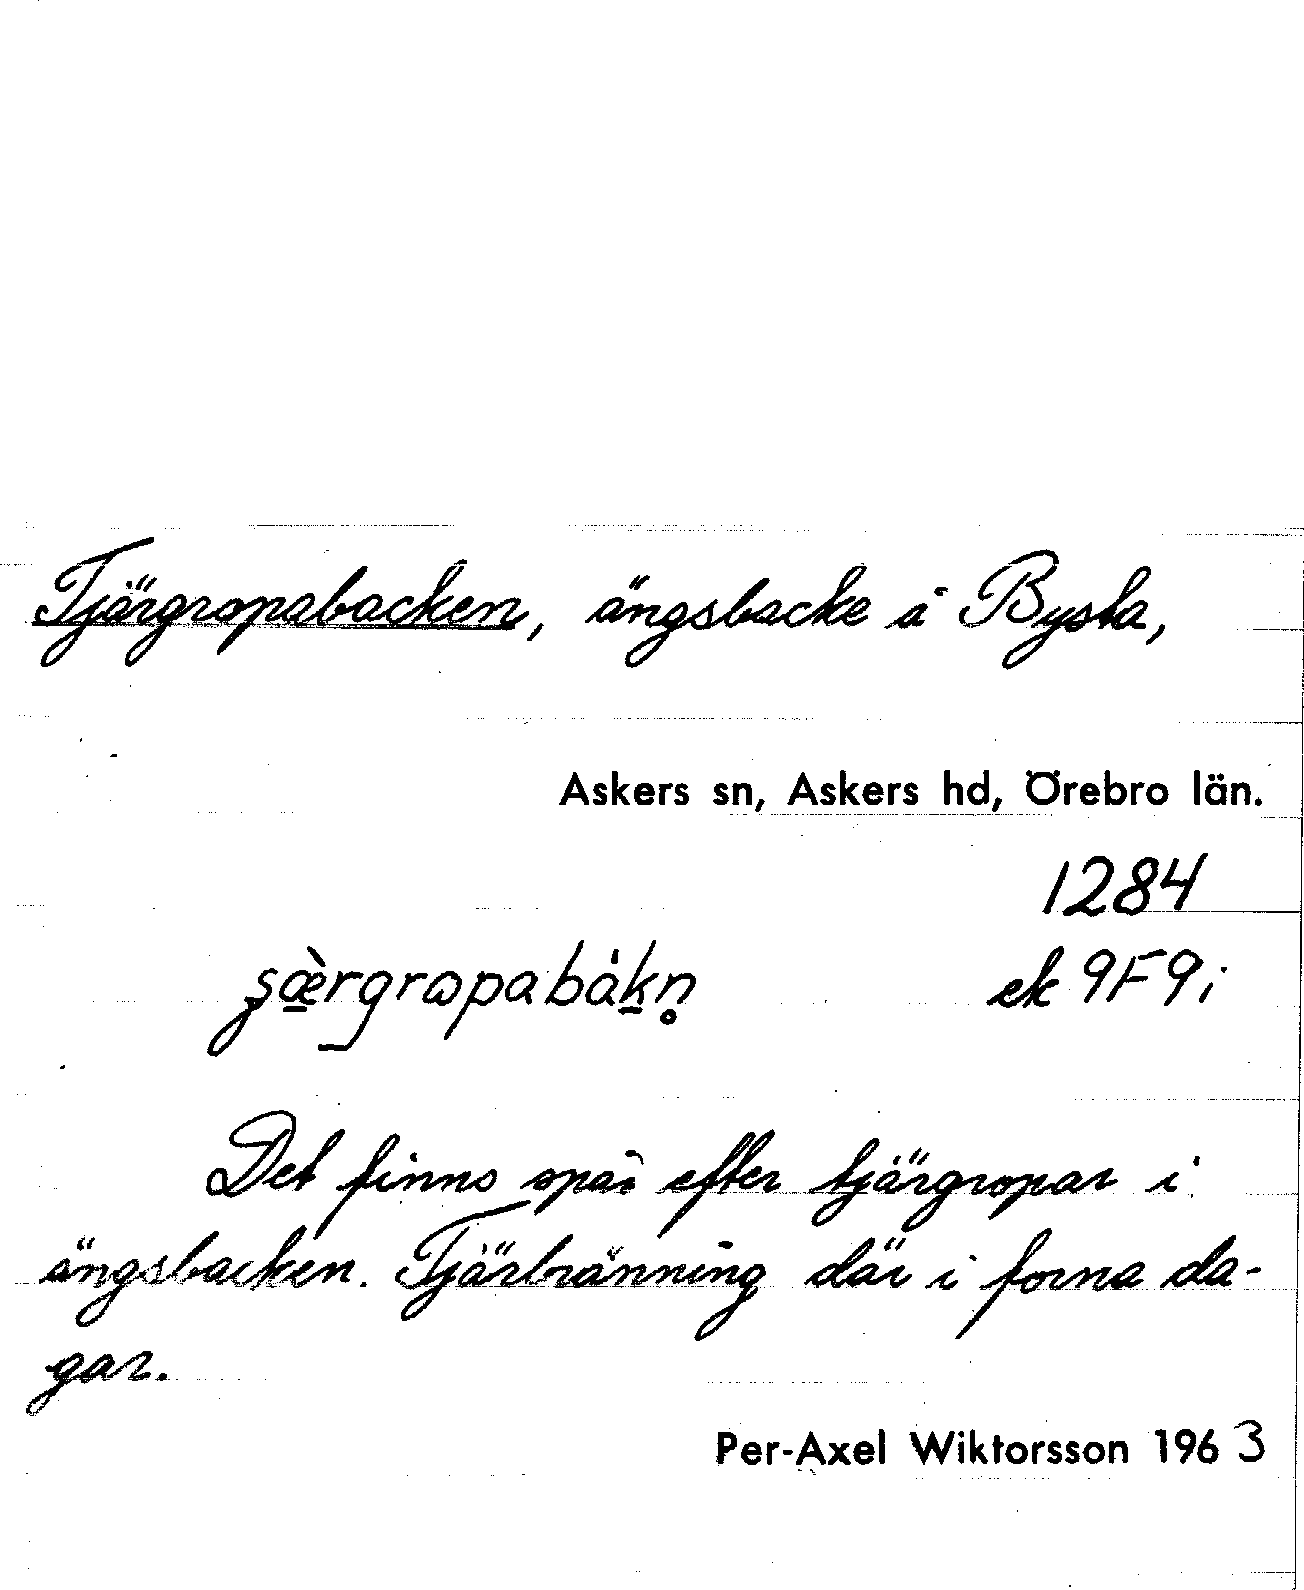 Tjärgropabacken, ängsbacke å Bysta,
Askers sn, Askers hd, Örebro län.
1284
ek 9F9i
Det finns spår efter tjärgropar i
ängsbacken. Tjärbränning där i forna da-
gar.
Per-Axel Wiktorsson 1963